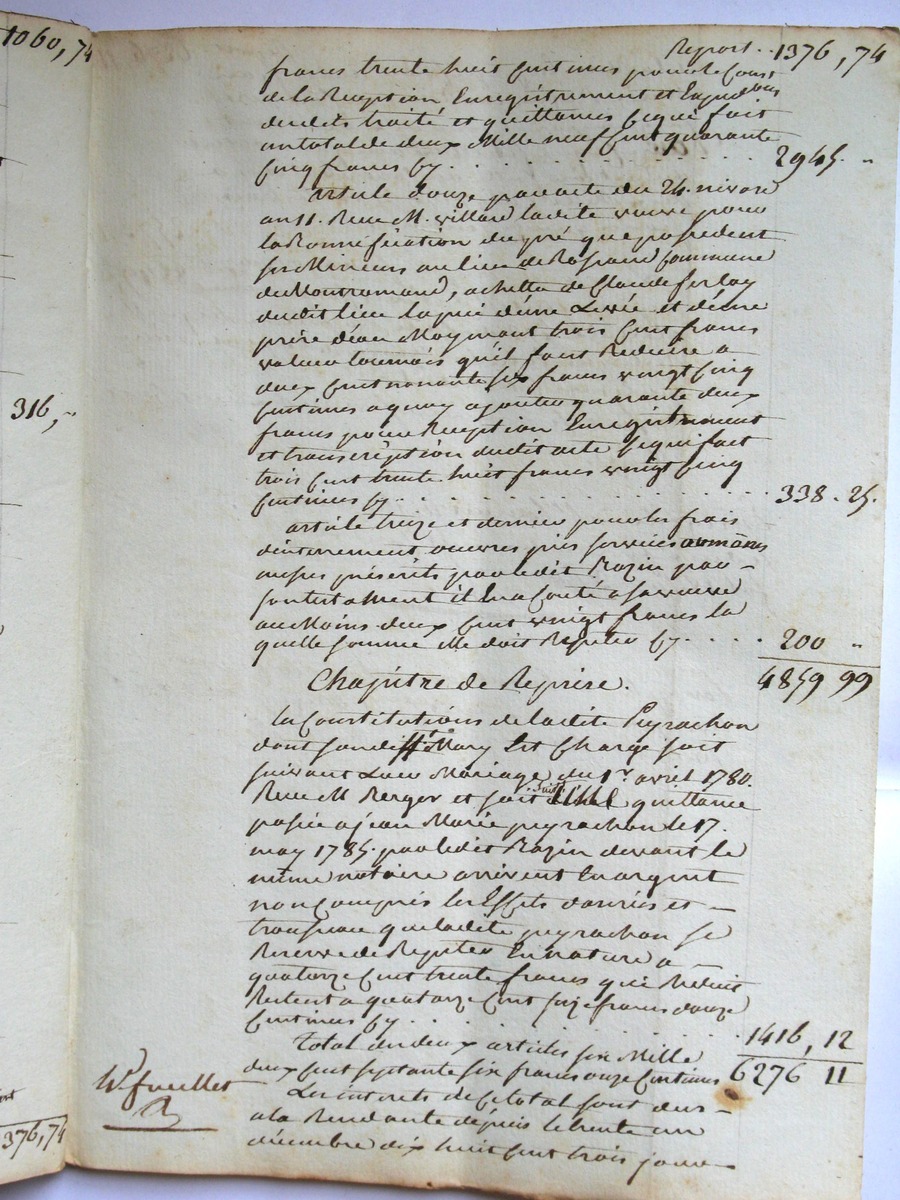 1060,74
316,"
376,74
Report .. 1376,74
francs trente huit centimes pour le cout
de la Reception Enregistrement et Expeditions
desdits traité et quittances ce qui fait
au total de deux Mille neuf cent quarante
cinq francs cy . . . . . . . . 2945. "
article douze par acte du 24. nivose
an 11. Reçu M. villard ladite veuve pour
la Bonnification du pré que possedent
ses Mineurs au lieu de Rossand Commune
de Montromand, achetta de Claude ferlay
dudit lieu la prise d'une Levée et d'une
prise d'eau Moyennant trois Cent francs
valeur tournois qu'il faut Reduire a
deux Cent nonante six francs vingt cinq
centimes a quoy ajouter quarante deux
francs pour Reception Enregistrement
et transcription dudit acte ce qui fait
trois Cent trente huit francs vingt cinq
Centimes cy . . . . . . . . 338 . 25.
article treize et dernier pour les frais
d'enterrement œuvres pies services aumônes
messes présents par ledit Bazin par
son testament il En a Couté a sa veuve
au Moins deux Cent vingt francs la
quelle somme elle doit Repeter cy . . . . 200 "
4859 99
Chapitre de Reprise.
la Constitutions de ladite Peyrachon
dont sondit Mary Est Chargé soit
suivant Leur Mariage du 1er avril 1780.
Reçu M Berger et soit suivt quittance
passée a jean Marie peyrachon le 17.
may 1785. par ledit Bazin devant le
même notaire arrivent En argent
non Compris les Effets danrées et
trousseau que ladite peyrachon se
Reserve de Repeter En nature a
quatorze Cent trente francs qui Reduit
Restent a quatorze Cent seize francs douze
Centimes cy . . . . . . . . 1416,12
Total des deux articles six Mille
deux cent septante six francs onze Centimes 6276 11
Les interets de Ce total sont dus
a la Rendante depuis le trente un
decembre dix huit cent trois jour
feuillet